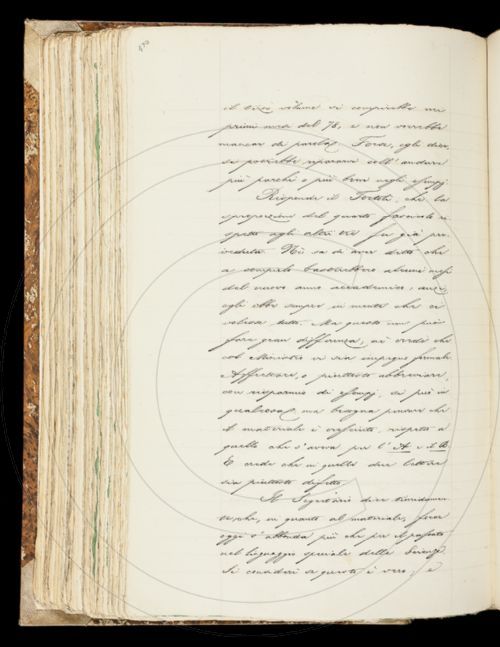 il terzo volume si compirebbe nei
primi mesi del 78, e non vorrebbe
mancar di parola. Forse, egli dice,
si potrebbe riparare coll' andare
più parchi o più brevi negli esempj.
Risponde il Tortoli, che la
sproporzione del quarto fascicolo ri-
spetto agli altri tre fu già pre-
veduta. Nè sa di aver detto che
a compirlo basterebbero alcuni mesi
del nuovo anno accademico, anzi
egli ebbe sempre in mente che ci
volesse tutto. Ma questo non può
fare gran differenza, nè crede che
col Ministro vi sia impegno formale.
Affrettare, o piuttosto abbreviare,
con risparmio di esempj, si può in
qualcosa; ma bisogna pensare che
il materiale è cresciuto, rispetto a
quello che s'aveva per l' A e il B.
E crede che in quelle due lettere
sia piuttosto difetto.
Il Segretario dice
che, in quanto al materiale, forse
oggi s' abbonda più che per il passato
nel linguaggio speciale delle Scienze.
Si consideri se questo è vero, e